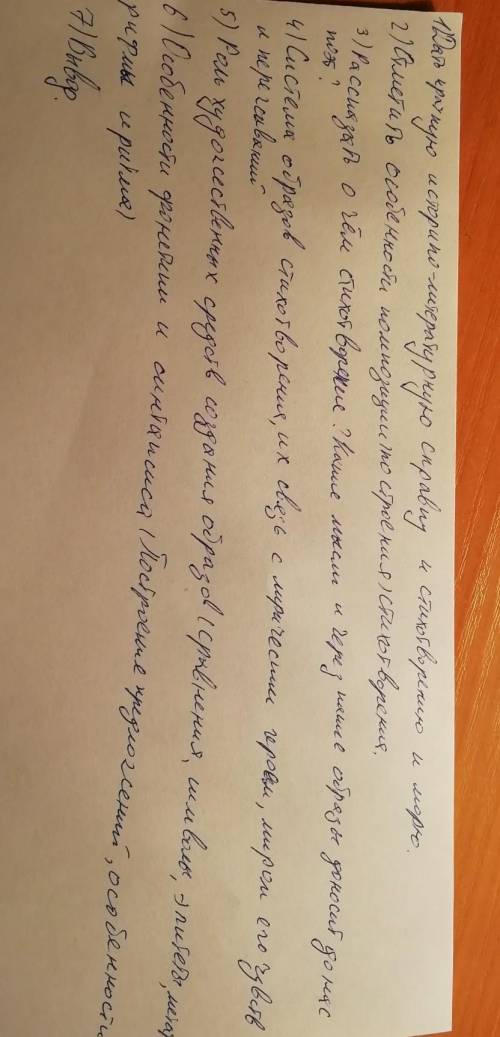 1) Дать краткую историко-литературную справку к стихотворению к морю.
2) Отметить особенности композиции (построения) стихотворения.
3) Рассказать о чём стихотворение? Какие мысли и через какие образы доносит до нас
поэт?
4) Система образов стихотворения, их связь с лирическим героем, миром его чувств
и переживаний
5) Роль художественных средств создания образов (сравнения, символы, эпитеты, мета
6) Особенности фонетики и синтаксиса (Построение предложений, особенности
рифмы и ритма)
7) Вывод.